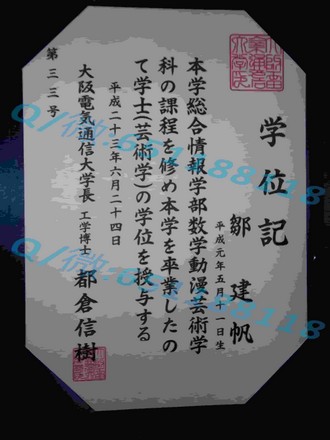 学位記
鄒建帆
平成元年五月十一日生
本学総合情報学部数学動漫芸術学
科の課程を修め本学を卒業したの
で学士(芸術学)の学位を授与する
平成二十三年六月二十四日
大阪電気通信大学長 工学博士 都倉信樹
第三三号